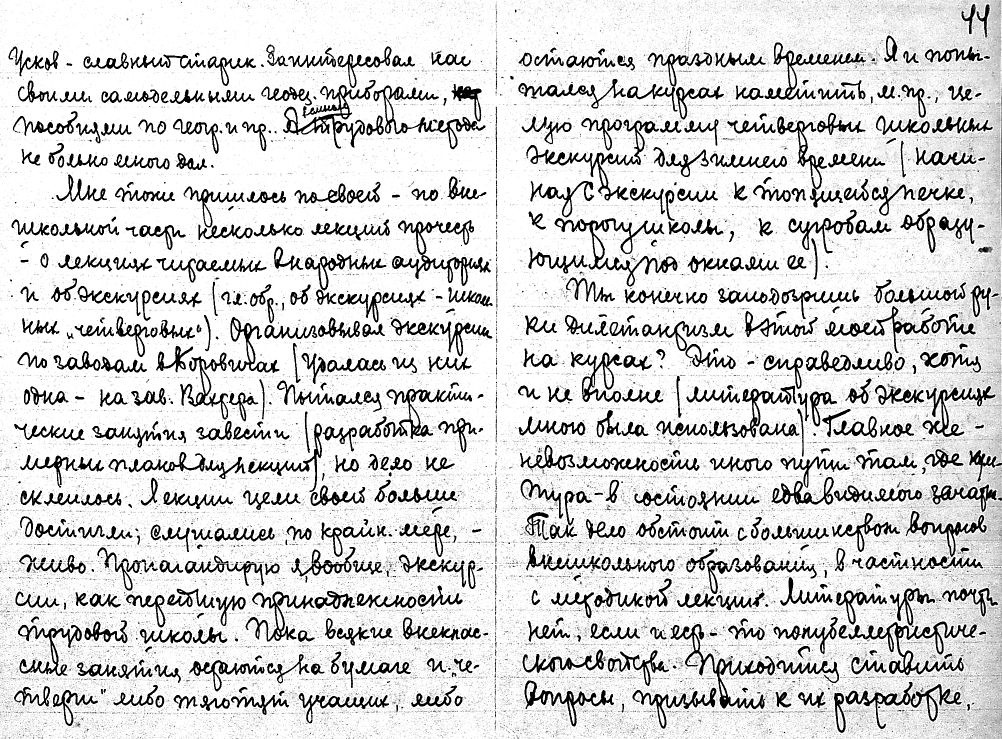 44
Усков - славный старик. Заинтересовал нас
своими самодельными геодез. приборами,
пособиями по геогр. и пр.. трудового метода
не больно много дал.
Мне тоже пришлось по своей - по вне-
школьной части несколько лекций прочесть
- о лекциях читаемых в народных аудиториях
и об экскурсиях (гл. обр., об экскурсиях - школь
ных „четверговых“). Организовывал экскурсии
по заводам в Боровичах (удалась из них
одна - на зав. Вахтера). Пытался практи-
ческие занятия завести (разработка при-
мерных планов для лекций), но дело не
склеилось. Лекции цели своей больше
достигли; слушались, по крайн. мере, -
живо. Пропагандирую я, вообще, экскур-
сии, как первейшую принадлежность
трудовой школы. Пока всякие внеклас-
сные занятия остаются на бумаге и „че-
тверги“ либо тяготят учащих, либо
остаются праздным временем. Я и попы-
тался на курсах наметить, м. пр., це-
лую программу четверговых школьных
экскурсий для зимнего времени (начи-
ная с экскурсии к топящейся печке,
к порогу школы, к сугробам образу-
ющимся под окнами ее).
Ты конечно заподозришь большой ру-
ки дилетантизм в этой моей работе
на курсах? Это - справедливо, хотя
и не вполне (литература об экскурсиях
мною была использована). Главное же -
невозможность иного пути там, где куль
тура - в состоянии едва видимого зачатка.
Так дело обстоит с большинством вопросов
внешкольного образования, в частности
с методикой лекций. Литературы почти
нет, если и есть - то полубеллетристиче-
ского свойства. Приходится ставить
вопросы, призывать к их разработке,